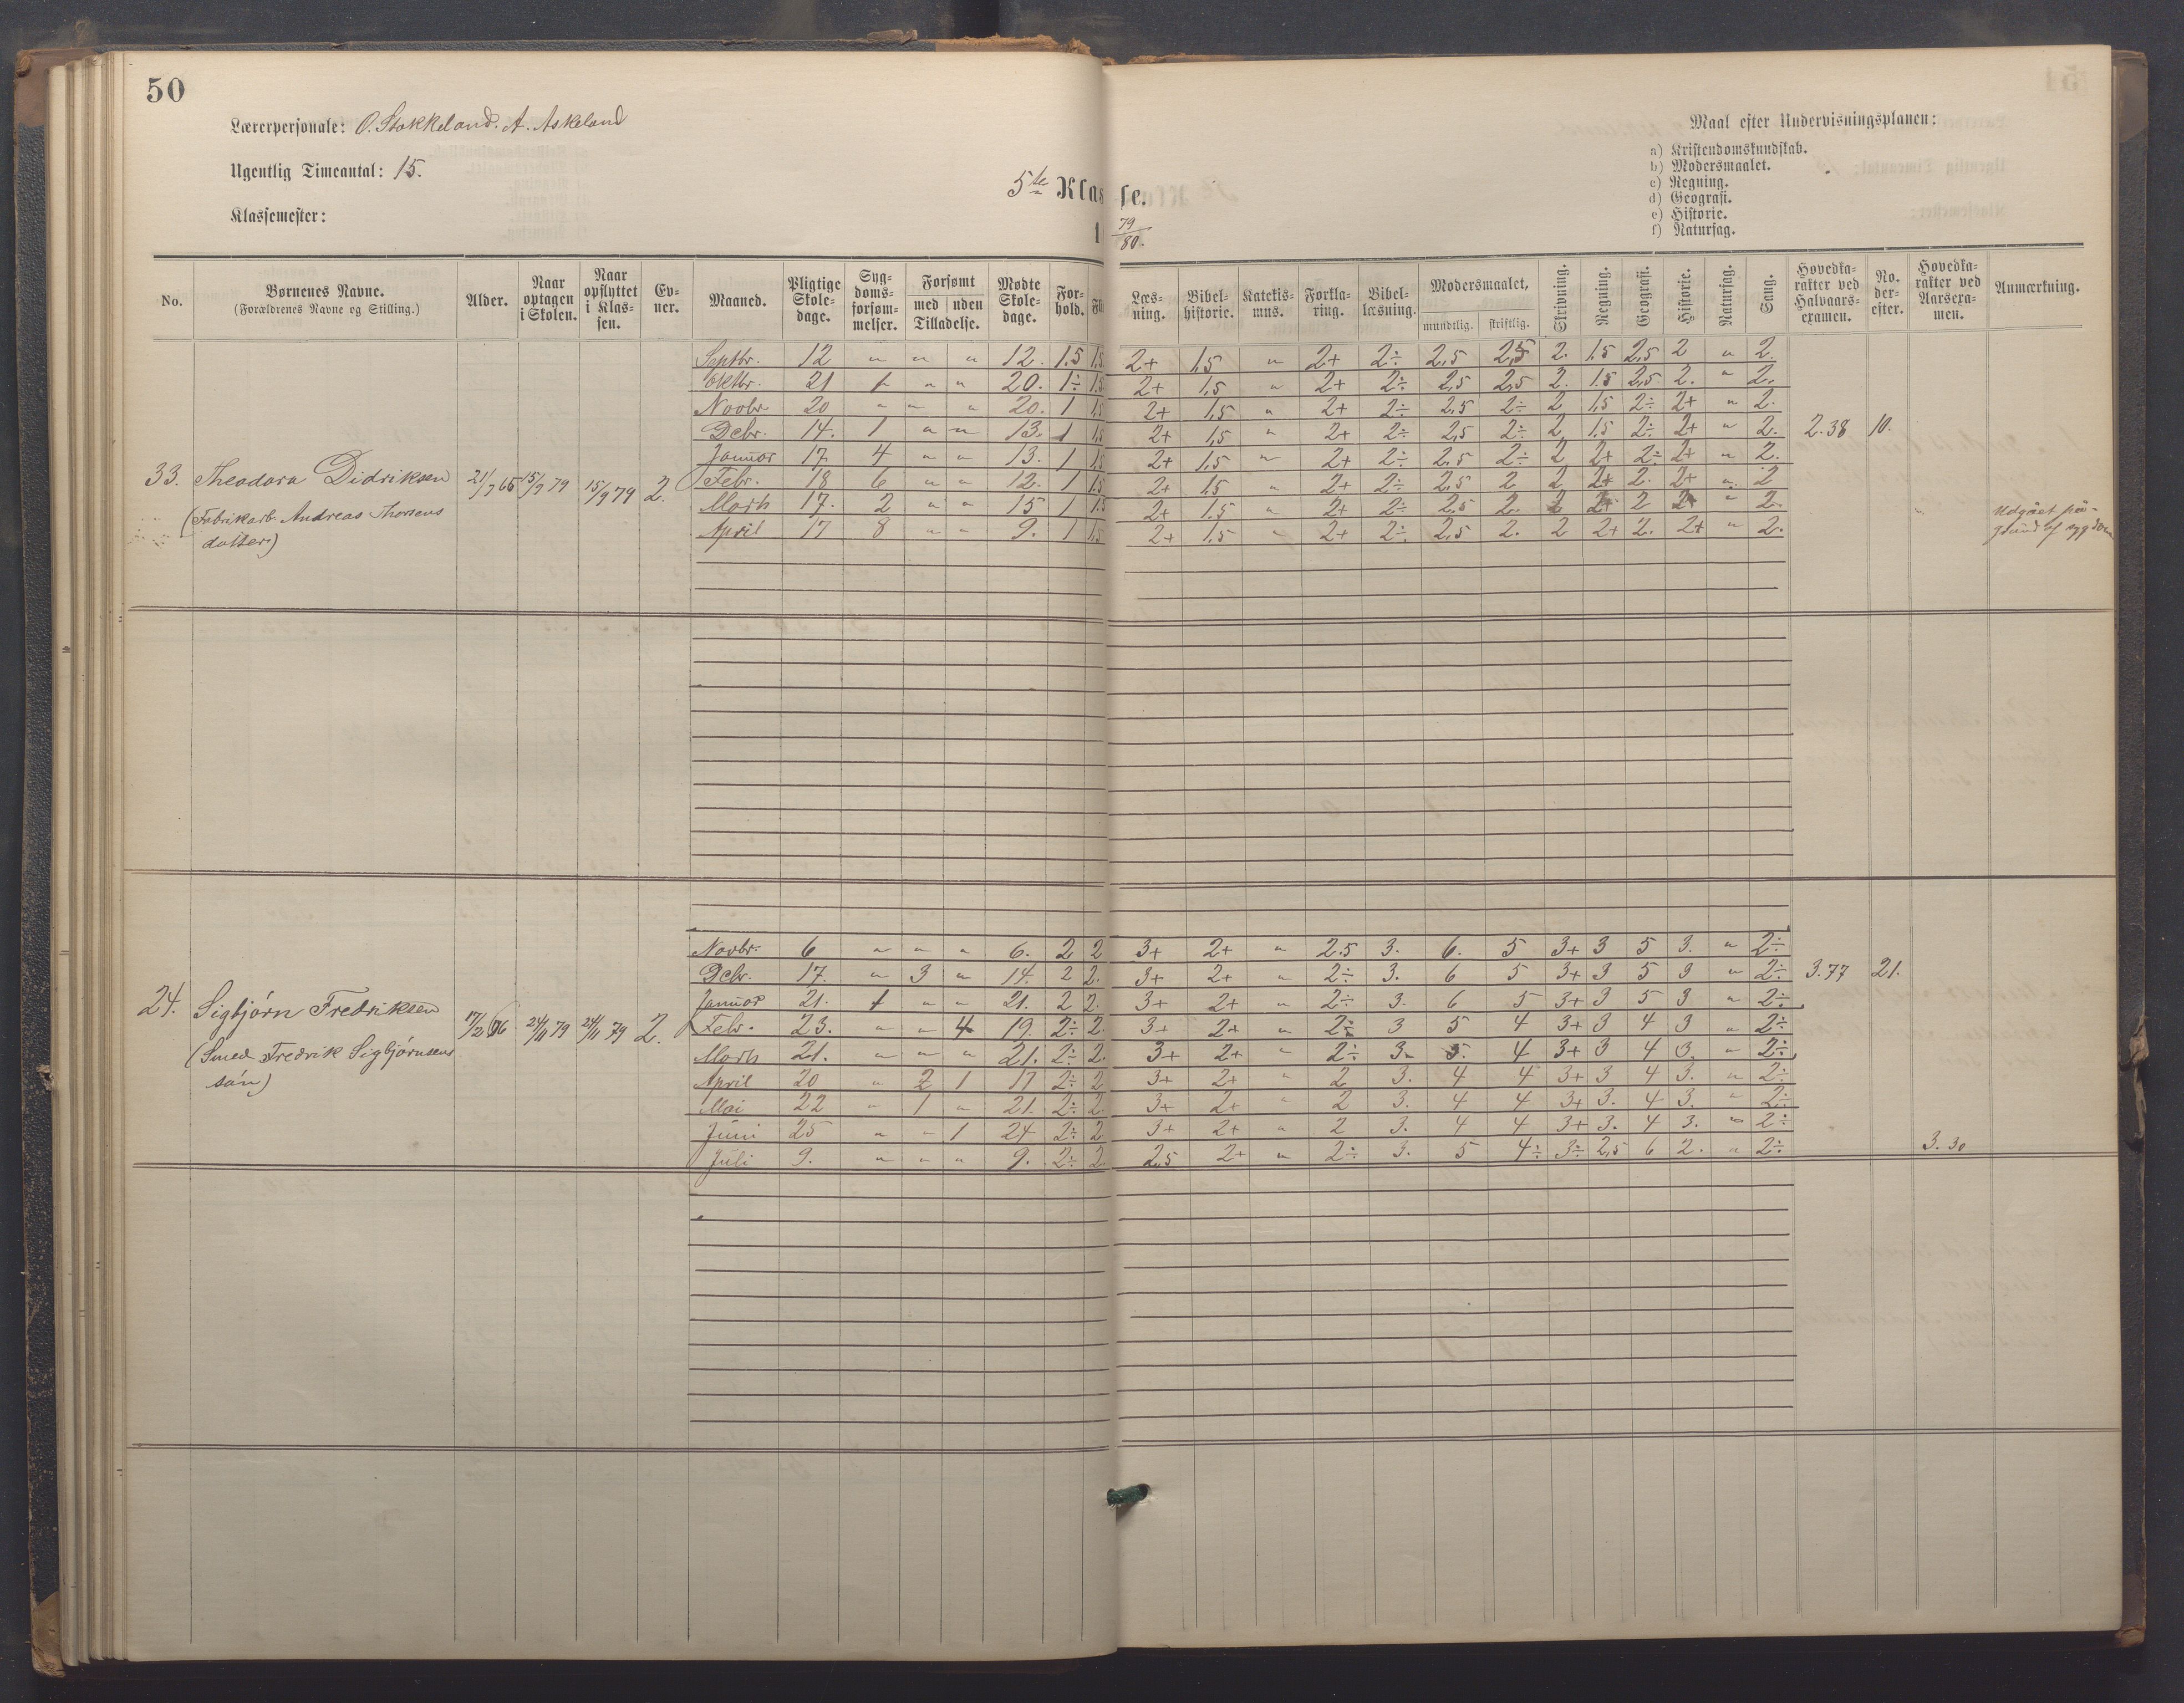 50
Lærerpersonale: O. Stokkeland. A. Askeland
Ugentlig Timeantal: 15.
Klassemester:
5te Klasse.
1 79/80.
Maal efter Undervisningsplanen:
a) Kristendomskundskab.
b) Modersmaalet.
c) Regning.
d) Geografi.
e) Historie.
f) Naturfag.
No. | Børnenes Navne. (Forældrenes Navne og Stilling.) | Alder. | Naar optagen i Skolen. | Naar opflyttet i Klassen. | Evner. | Maaned. | Pligtige Skoledage. | Sygdomsforsømmelser. | Forsømt med uden Tilladelse. | Mødte Skoledage. | Forhold. | Fli | Læsning. | Bibelhistorie. | Katekismus. | Forklaring. | Bibellæsning. | Modersmaalet, mundtlig. skriftlig. | Skrivning. | Regning. | Geografi. | Historie. | Naturfag. | Sang. | Hovedkarakter ved Halvaarsexamen. | No. derefter. | Hovedkarakter ved Aarsexamen. | Anmærkning.
Septbr. 12 " " " 12. 1.5 1,5 2+ 1,5 " 2+ 2÷ 2,5 2,5 2. 1.5 2,5 2 " 2.
Oktbr. 21 1 " " 20. 1÷ 1,5 2+ 1,5 " 2+ 2÷ 2,5 2,5 2. 1.5 2,5 2. " 2.
Novbr. 20 " " " 20. 1 1,5 2+ 1,5 " 2+ 2÷ 2,5 2÷ 2 1,5 2÷ 2+ " 2.
Debr. 14. 1 " " 13. 1 1,5 2+ 1,5 " 2+ 2÷ 2,5 2÷ 2 1,5 2÷ 2+ " 2. 2.38 10.
Januar 17 4 " " 13. 1 1,5 2+ 1,5 " 2+ 2÷ 2,5 2÷ 2 2+ 2÷ 2+ " 2.
33. Theodora Didriksen 21/7 65 15/9 79 15/9 79 2. Febr. 18 6 " " 12. 1 1.5 2+ 1,5 " 2+ 2÷ 2,5 2 2 2+ 2. 2+ " 2
(Fabrikarb. Andreas Thorsens Marts 17. 2 " " 15 1 1.5 2+ 1.5 " 2+ 2÷ 2,5 2. 2 2+ 2 2+ " 2. Udgået på-
datter) April 17 8 " " 9. 1 1,5 2+ 1.5 " 2+ 2÷ 2,5 2. 2 2+ 2. 2+ " 2. grund af sygdom
Novbr. 6 " " " 6. 2 2 3+ 2+ " 2.5 3. 6. 5 3+ 3 5 3. " 2÷
Debr. 17. " 3 " 14. 2 2. 3+ 2+ " 2÷ 3. 6 5 3+ 3 5 3 " 2÷ 3.77 21.
24. Sigbjørn Fredriksen Januar 21. 1 " " 21. 2 2. 3+ 2+ " 2÷ 3. 6 5 3+ 3 5 3 " 2÷
24/11 79 24/11 79 2. Febr. 23. " " 4 19. 2÷ 2. 3+ 2+ " 2÷ 3 5 4 3+ 3 4 3 " 2÷
(Smed Fredrik Sigbjørnsens Marts 21. " " " 21. 2÷ 2. 3+ 2+ " 2÷ 3. 5. 4 3+ 3 4 3. " 2÷
søn) April 20 " 2 1 17 2÷ 2 3+ 2+ " 2 3. 4 4 3+ 3 4 3. " 2÷
Mai 22 " 1 " 21. 2÷ 2. 3+ 2+ " 2 3. 4 4 3+ 3. 4 3. " 2÷
Juni 25 " " 1 24 2÷ 2 3+ 2+ " 2 3. 4 4 3+ 3. 4 3. " 2÷
Juli 9. " " " 9. 2÷ 2. 2,5 2+ " 2÷ 3. 5 4÷ 3÷ 2,5 6 2. " 2÷ 3.30